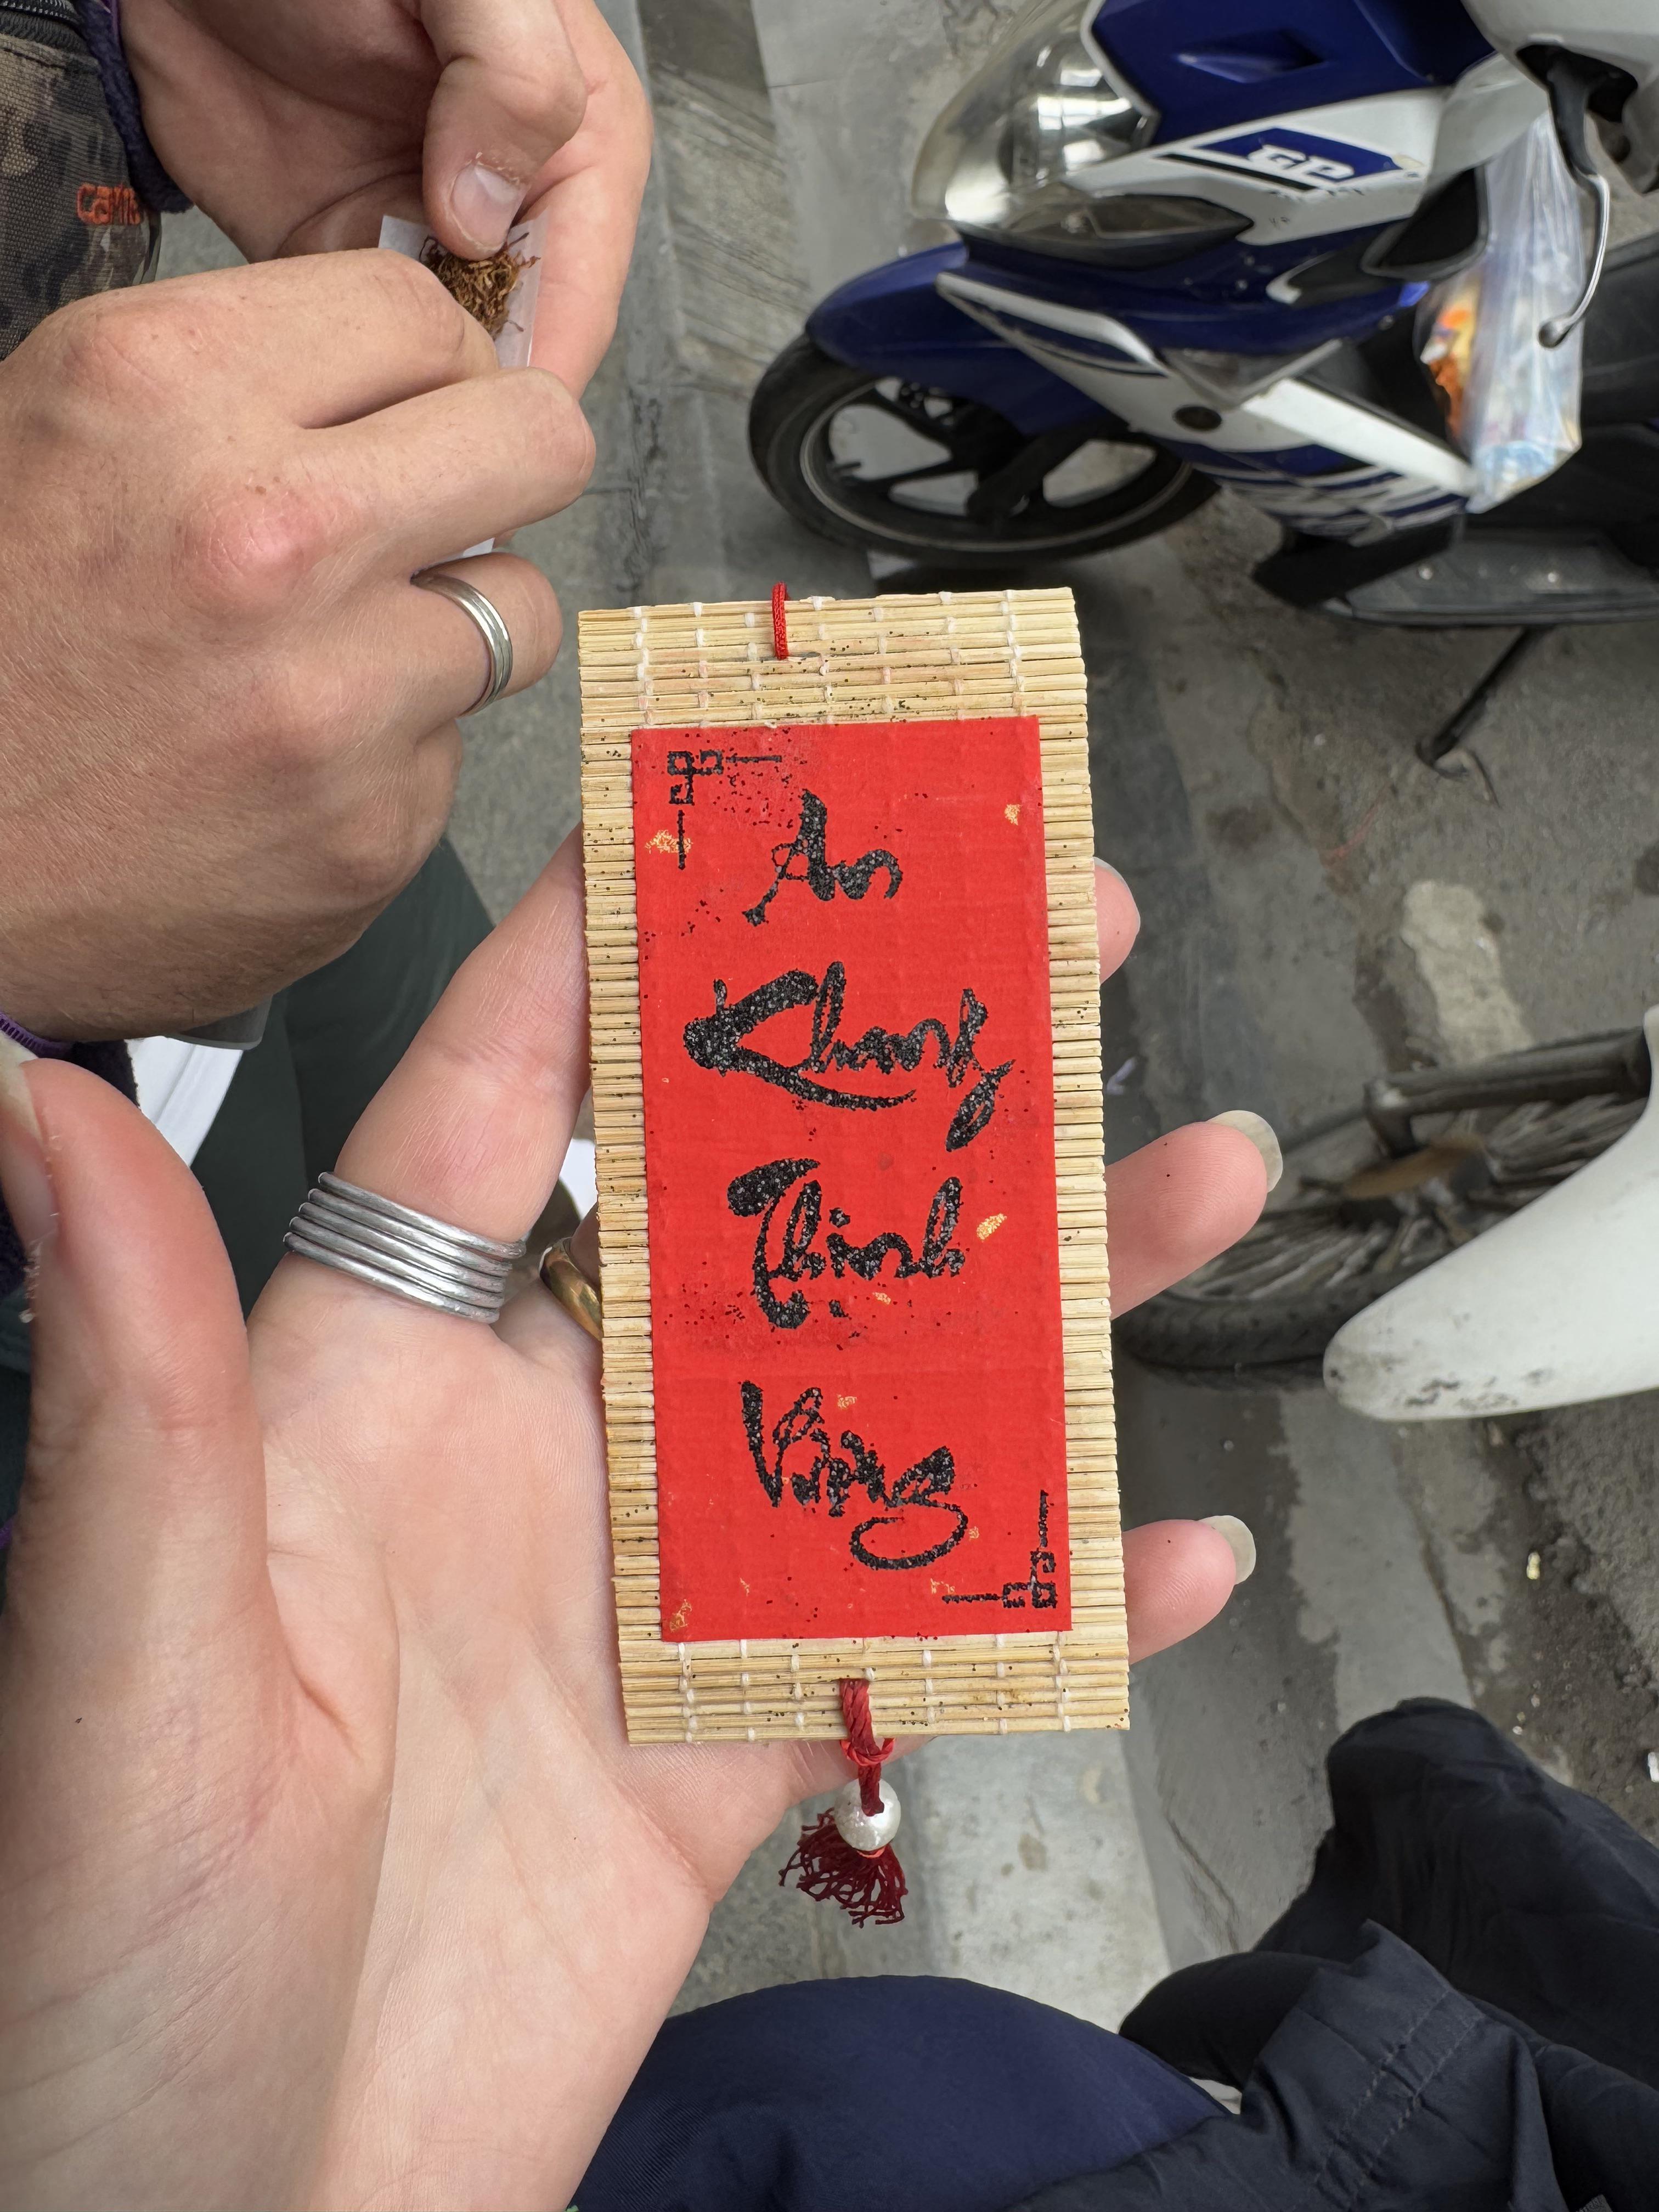 An
Khang
Thịnh
Vượng
GP